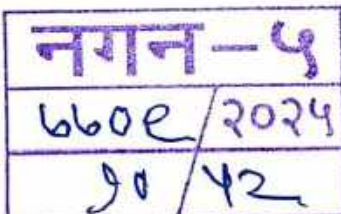 नगन-५
७७०९/२०२५
१०/५२